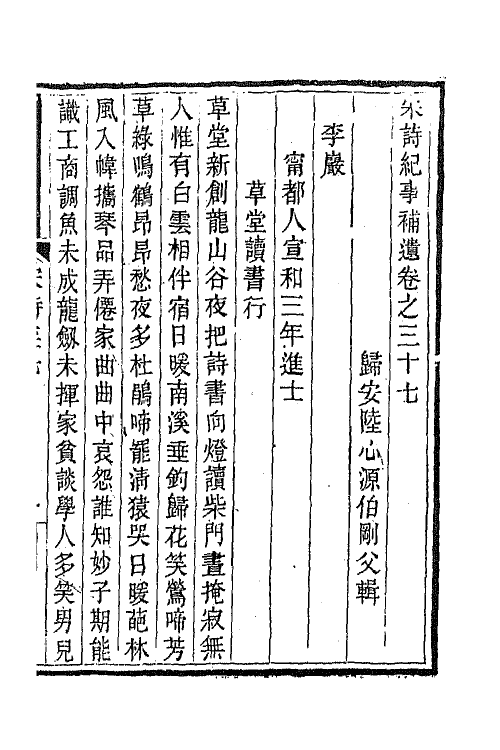 宋詩紀事補遺卷之三十七
歸安陸心源伯剛父輯
李巖
甯都人宣和三年進士
草堂讀書行
草堂新創龍山谷夜把詩書向燈讀柴門晝掩寂無
人惟有白雲相伴宿日暖南溪垂釣歸花笑鶯啼芳
草綠鳴鶴昂昂愁夜多杜鵑啼罷淸猿哭日暖葩林
風入幃攜琴品弄僊家曲曲中哀怨誰知妙子期能
識工商調魚未成龍劔未揮家貧談學人多笑男兒